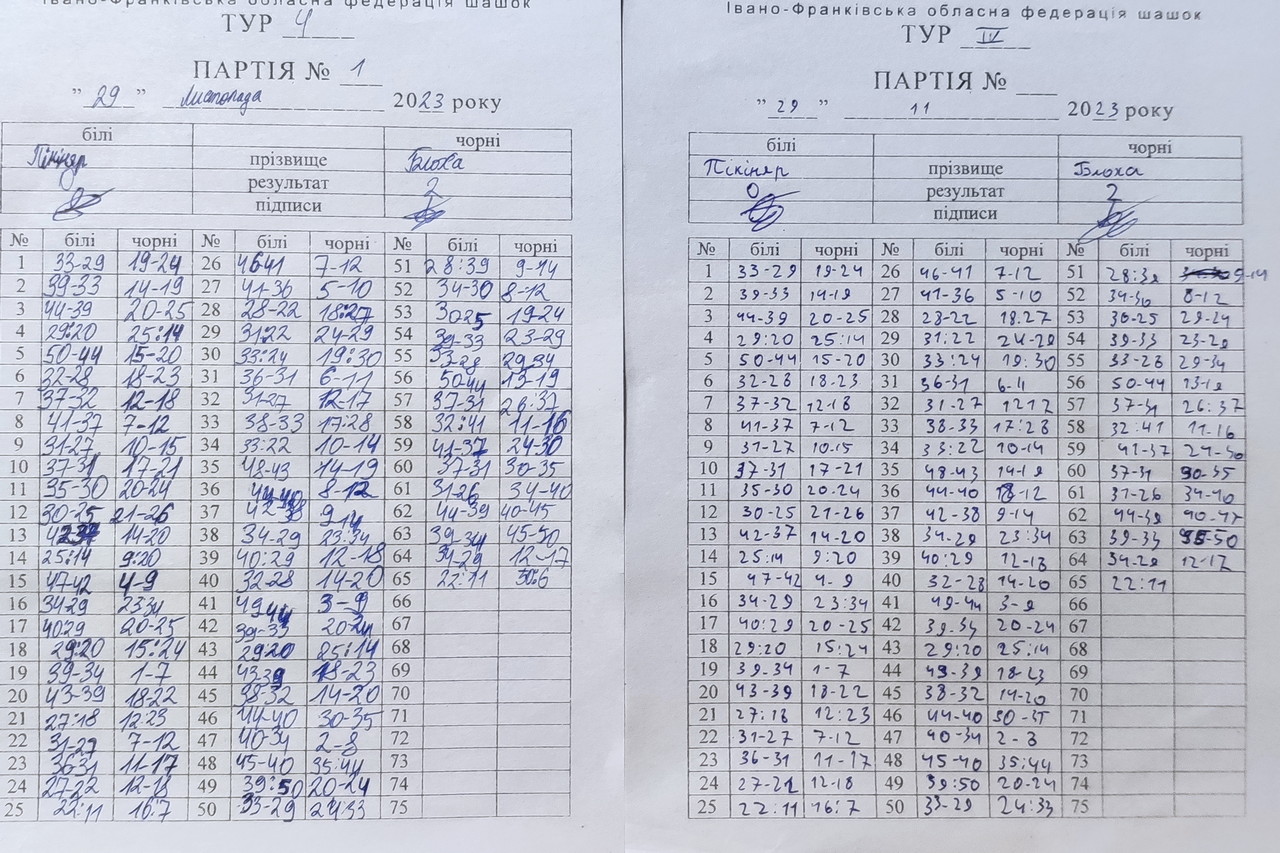 Івано-Франківська обласна федерація шашок
ТУР 4
ПАРТІЯ № 1
" 29 " Листопада 2023 року
білі чорні
Пікінер прізвище Блоха
результат 2
підписи
№ білі чорні № білі чорні № білі чорні
1 33-29 19-24 26 4641 7-12 51 28:39 9-14
2 39-33 14-19 27 41-36 5-10 52 34-30 8-12
3 44-39 20-25 28 28-22 18:27 53 3025 19-24
4 29:20 25:14 29 31:22 24-29 54 39-33 23-29
5 50-44 15-20 30 33:24 19:30 55 33-28 2934
6 32-28 18-23 31 36-31 6-11 56 5044 13-19
7 37-32 12-18 32 31-27 12-17 57 37-31 26:37
8 41-37 7-12 33 38-33 17:28 58 32:41 11-16
9 31-27 10-15 34 33:22 10-14 59 41-37 24-30
10 37-31 17-21 35 48-43 14-19 60 37-31 30-35
11 35-30 20-24 36 44-40 8-12 61 31-26 34-40
12 30-25 21-26 37 42-38 914 62 44-39 40-45
13 4237 14-20 38 34-29 23:34 63 39-34 45-50
14 25:14 9:20 39 40:29 12-18 64 34-29 12-17
15 47-42 4-9 40 32-28 14-20 65 22:11 50:6
16 34-29 2334 41 4944 3-9 66
17 4029 20-25 42 39-33 20-24 67
18 29:20 15:24 43 29:20 25:14 68
19 39-34 1-7 44 4339 18-23 69
20 43-39 18-22 45 38-32 14-20 70
21 27:18 12:23 46 44-40 30-35 71
22 31-27 7-12 47 40-34 2-8 72
23 3631 11-17 48 45-40 35:44 73
24 27-22 12-18 49 39:50 20-24 74
25 22:11 16:7 50 33-29 24:33 75
Івано-Франківська обласна федерація шашок
ТУР IV
ПАРТІЯ №
" 29 " 11 2023 року
білі чорні
Пікінер прізвище Блоха
0 результат 2
підписи
№ білі чорні № білі чорні № білі чорні
1 33-29 19-24 26 46-41 7-12 51 28:39 9-14
2 39-33 14-19 27 41-36 5-10 52 34-30 8-12
3 44-39 20-25 28 28-22 18.27 53 30-25 29-24
4 29:20 25:14 29 31:22 24-29 54 39-33 23-29
5 50-44 15-20 30 33:24 19:30 55 33-28 29-34
6 32-28 18-23 31 36-31 6-11 56 50-44 13-19
7 37-32 12-18 32 31-27 1217 57 37-31 26:37
8 41-37 7-12 33 38-33 17:28 58 32:41 11-16
9 31-27 10-15 34 33:22 10-14 59 41-37 24-30
10 37-31 17-21 35 48-43 14-19 60 37-31 30-35
11 35-30 20-24 36 44-40 8-12 61 31-26 34-40
12 30-25 21-26 37 42-38 9-14 62 44-39 40-45
13 42-37 14-20 38 34-29 23:34 63 39-33 45-50
14 25:14 9:20 39 40:29 12-18 64 34-29 12-17
15 47-42 4-9 40 32-28 14-20 65 22:11
16 34-29 23:34 41 49-44 3-9 66
17 40:29 20-25 42 39-34 20-24 67
18 29:20 15:24 43 29:20 25:14 68
19 39-34 1-7 44 43-39 18-23 69
20 43-39 18-22 45 38-32 14-20 70
21 27:18 12:23 46 44-40 30-35 71
22 31-27 7-12 47 40-34 2-8 72
23 36-31 11-17 48 45-40 35:44 73
24 27-22 12-18 49 39:50 20-24 74
25 22:11 16:7 50 33-29 24:33 75